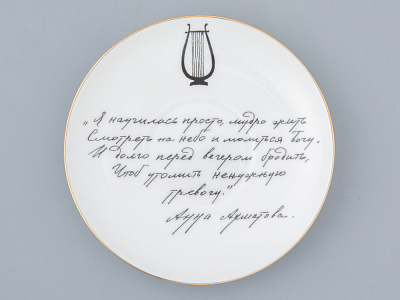 „Я научилась просто, мудро жить
Смотреть на небо и молиться Богу.
И долго перед вечером бродить,
Чтоб утомить ненужную
тревогу."
Анна Ахматова.